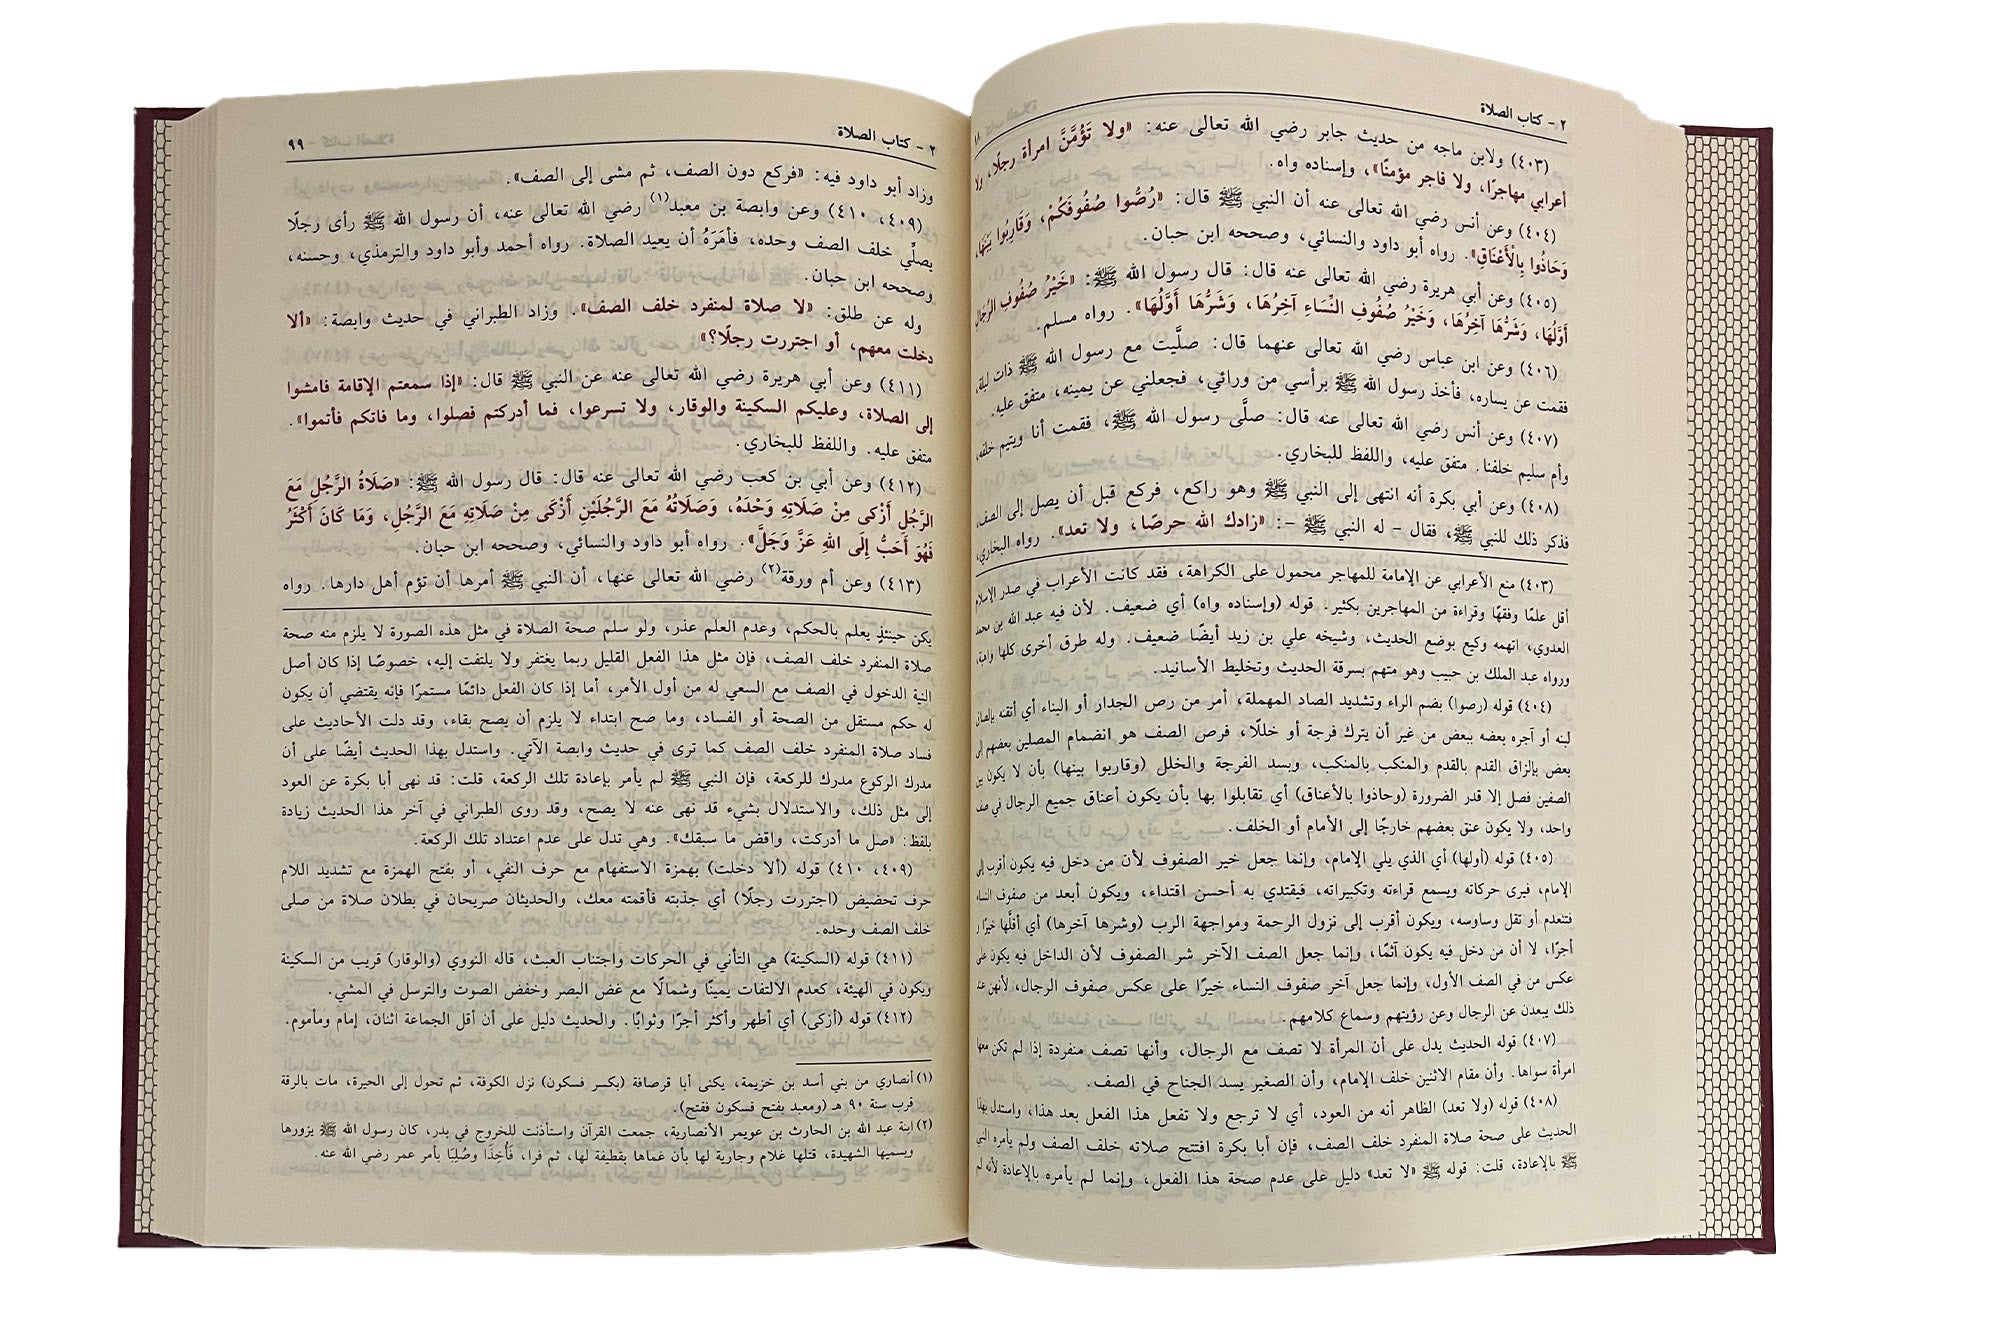 ٢ - كتاب الصلاة
(٤٠٣) ولابن ماجه من حديث جابر رضي الله تعالى عنه: «ولا تَؤُمَّنَّ امرأة رجلًا، ولا
أعرابي مهاجرًا، ولا فاجر مؤمنًا»، وإسناده واه.
(٤٠٤) وعن أنس رضي الله تعالى عنه أن النبي ﷺ قال: «رُصُّوا صُفُوفَكُمْ، وَقَارِبُوا بَيْنَهَا،
وَحَاذُوا بِالْأَعْنَاقِ». رواه أبو داود والنسائي، وصححه ابن حبان.
(٤٠٥) وعن أبي هريرة رضي الله تعالى عنه قال: قال رسول الله ﷺ: «خَيْرُ صُفُوفِ الرِّجالِ
أَوَّلُهَا، وَشَرُّهَا آخِرُهَا، وَخَيْرُ صُفُوفِ النِّسَاءِ آخِرُهَا، وَشَرُّهَا أَوَّلُهَا». رواه مسلم.
(٤٠٦) وعن ابن عباس رضي الله تعالى عنهما قال: صلَّيت مع رسول الله ﷺ ذات ليلة،
فقمت عن يساره، فأخذ رسول الله ﷺ برأسي من ورائي، فجعلني عن يمينه، متفق عليه.
(٤٠٧) وعن أنس رضي الله تعالى عنه قال: صلَّى رسول الله ﷺ، فقمت أنا ويتيم خلفه،
وأم سليم خلفنا. متفق عليه، واللفظ للبخاري.
(٤٠٨) وعن أبي بكرة أنه انتهى إلى النبي ﷺ وهو راكع، فركع قبل أن يصل إلى الصف،
فذكر ذلك للنبي ﷺ، فقال - له النبي ﷺ -: «زادك الله حرصًا، ولا تعد». رواه البخاري،
(٤٠٣) منع الأعرابي عن الإمامة للمهاجر محمول على الكراهة، فقد كانت الأعراب في صدر الإسلام
أقل علمًا وفقهًا وقراءة من المهاجرين بكثير. قوله (وإسناده واه) أي ضعيف. لأن فيه عبد الله بن محمد
العدوي، اتهمه وكيع بوضع الحديث، وشيخه علي بن زيد أيضًا ضعيف. وله طرق أخرى كلها واهية،
ورواه عبد الملك بن حبيب وهو متهم بسرقة الحديث وتخليط الأسانيد.
(٤٠٤) قوله (رصوا) بضم الراء وتشديد الصاد المهملة، أمر من رص الجدار أو البناء أي أتقنه بإلصاق
لبنه أو آجره بعضه ببعض من غير أن يترك فرجة أو خللًا، فرص الصف هو انضمام المصلين بعضهم إلى
بعض بإلزاق القدم بالقدم والمنكب بالمنكب، وبسد الفرجة والخلل (وقاربوا بينها) بأن لا يكون بين
الصفين فصل إلا قدر الضرورة (وحاذوا بالأعناق) أي تقابلوا بها بأن يكون أعناق جميع الرجال في صف
واحد، ولا يكون عنق بعضهم خارجًا إلى الأمام أو الخلف.
(٤٠٥) قوله (أولها) أي الذي يلي الإمام، وإنما جعل خير الصفوف لأن من دخل فيه يكون أقرب إلى
الإمام، فيرى حركاته ويسمع قراءته وتكبيراته، فيقتدي به أحسن اقتداء، ويكون أبعد من صفوف النساء
فتنعدم أو تقل وساوسه، ويكون أقرب إلى نزول الرحمة ومواجهة الرب (وشرها آخرها) أي أقلَّها خيرًا و
أجرًا، لا أن من دخل فيه يكون آثمًا، وإنما جعل الصف الآخر شر الصفوف لأن الداخل فيه يكون على
عكس من في الصف الأول، وإنما جعل آخر صفوف النساء خيرًا على عكس صفوف الرجال، لأنهن عند
ذلك يبعدن عن الرجال وعن رؤيتهم وسماع كلامهم.
(٤٠٧) قوله الحديث يدل على أن المرأة لا تصف مع الرجال، وأنها تصف منفردة إذا لم تكن معها
امرأة سواها. وأن مقام الاثنين خلف الإمام، وأن الصغير يسد الجناح في الصف.
(٤٠٨) قوله (ولا تعد) الظاهر أنه من العود، أي لا ترجع ولا تفعل هذا الفعل بعد هذا، واستدل بهذا
الحديث على صحة صلاة المنفرد خلف الصف، فإن أبا بكرة افتتح صلاته خلف الصف ولم يأمره النبي
ﷺ بالإعادة، قلت: قوله ﷺ «لا تعد» دليل على عدم صحة هذا الفعل، وإنما لم يأمره بالإعادة لأنه لم
٢ - كتاب الصلاة ٩٩
وزاد أبو داود فيه: «فركع دون الصف، ثم مشى إلى الصف».
(٤٠٩، ٤١٠) وعن وابصة بن معبد(١) رضي الله تعالى عنه، أن رسول الله ﷺ رأى رجلًا
يصلِّي خلف الصف وحده، فأمَرَهُ أن يعيد الصلاة. رواه أحمد وأبو داود والترمذي، وحسنه،
وصححه ابن حبان.
وله عن طلق: «لا صلاة لمنفرد خلف الصف». وزاد الطبراني في حديث وابصة: «ألا
دخلت معهم، أو اجتررت رجلًا؟»
(٤١١) وعن أبي هريرة رضي الله تعالى عنه عن النبي ﷺ قال: «إذا سمعتم الإقامة فامشوا
إلى الصلاة، وعليكم السكينة والوقار، ولا تسرعوا، فما أدركتم فصلوا، وما فاتكم فأتموا».
متفق عليه. واللفظ للبخاري.
(٤١٢) وعن أبي بن كعب رضي الله تعالى عنه قال: قال رسول الله ﷺ: «صَلَاةُ الرَّجُلِ مَعَ
الرَّجُلِ أَزْكَى مِنْ صَلَاتِهِ وَحْدَهُ، وَصَلَاتُهُ مَعَ الرَّجُلَيْنِ أَزْكَى مِنْ صَلَاتِهِ مَعَ الرَّجُلِ، وَمَا كَانَ أَكْثَرُ
فَهُوَ أَحَبُّ إِلَى اللهِ عَزَّ وَجَلَّ». رواه أبو داود والنسائي، وصححه ابن حبان.
(٤١٣) وعن أم ورقة(٢) رضي الله تعالى عنها، أن النبي ﷺ أمرها أن تؤم أهل دارها. رواه
يكن حينئذٍ يعلم بالحكم، وعدم العلم عذر، ولو سلم صحة الصلاة في مثل هذه الصورة لا يلزم منه صحة
صلاة المنفرد خلف الصف، فإن مثل هذا الفعل القليل ربما يغتفر ولا يلتفت إليه، خصوصًا إذا كان أصل
النية الدخول في الصف مع السعي له من أول الأمر، أما إذا كان الفعل دائمًا مستمرًا فإنه يقتضي أن يكون
له حكم مستقل من الصحة أو الفساد، وما صح ابتداء لا يلزم أن يصح بقاء، وقد دلت الأحاديث على
فساد صلاة المنفرد خلف الصف كما ترى في حديث وابصة الآتي. واستدل بهذا الحديث أيضًا على أن
مدرك الركوع مدرك للركعة، فإن النبي ﷺ لم يأمر بإعادة تلك الركعة، قلت: قد نهى أبا بكرة عن العود
إلى مثل ذلك، والاستدلال بشيء قد نهى عنه لا يصح، وقد روى الطبراني في آخر هذا الحديث زيادة
بلفظ: «صل ما أدركت، واقض ما سبقك». وهي تدل على عدم اعتداد تلك الركعة.
(٤٠٩، ٤١٠) قوله (ألا دخلت) بهمزة الاستفهام مع حرف النفي، أو بفتح الهمزة مع تشديد اللام
حرف تحضيض (اجتررت رجلًا) أي جذبته فأقمته معك، والحديثان صريحان في بطلان صلاة من صلى
خلف الصف وحده.
(٤١١) قوله (السكينة) هي التأني في الحركات واجتناب العبث، قاله النووي (والوقار) قريب من السكينة
ويكون في الهيئة، كعدم الالتفات يمينًا وشمالًا مع غض البصر وخفض الصوت والترسل في المشي.
(٤١٢) قوله (أزكى) أي أطهر وأكثر أجرًا وثوابًا. والحديث دليل على أن أقل الجماعة اثنان، إمام ومأموم.
(١) أنصاري من بني أسد بن خزيمة، يكنى أبا قرصافة (بكسر فسكون) نزل الكوفة، ثم تحول إلى الحيرة، مات بالرقة
قرب سنة ٩٠ هـ (ومعبد بفتح فسكون ففتح).
(٢) ابنة عبد الله بن الحارث بن عويمر الأنصارية، جمعت القرآن واستأذنت للخروج في بدر، كان رسول الله ﷺ يزورها
ويسميها الشهيدة، قتلها غلام وجارية لها بأن غماها بقطيفة لها، ثم فرا، فَأُخِذَا وصُلِبَا بأمر عمر رضي الله عنه.